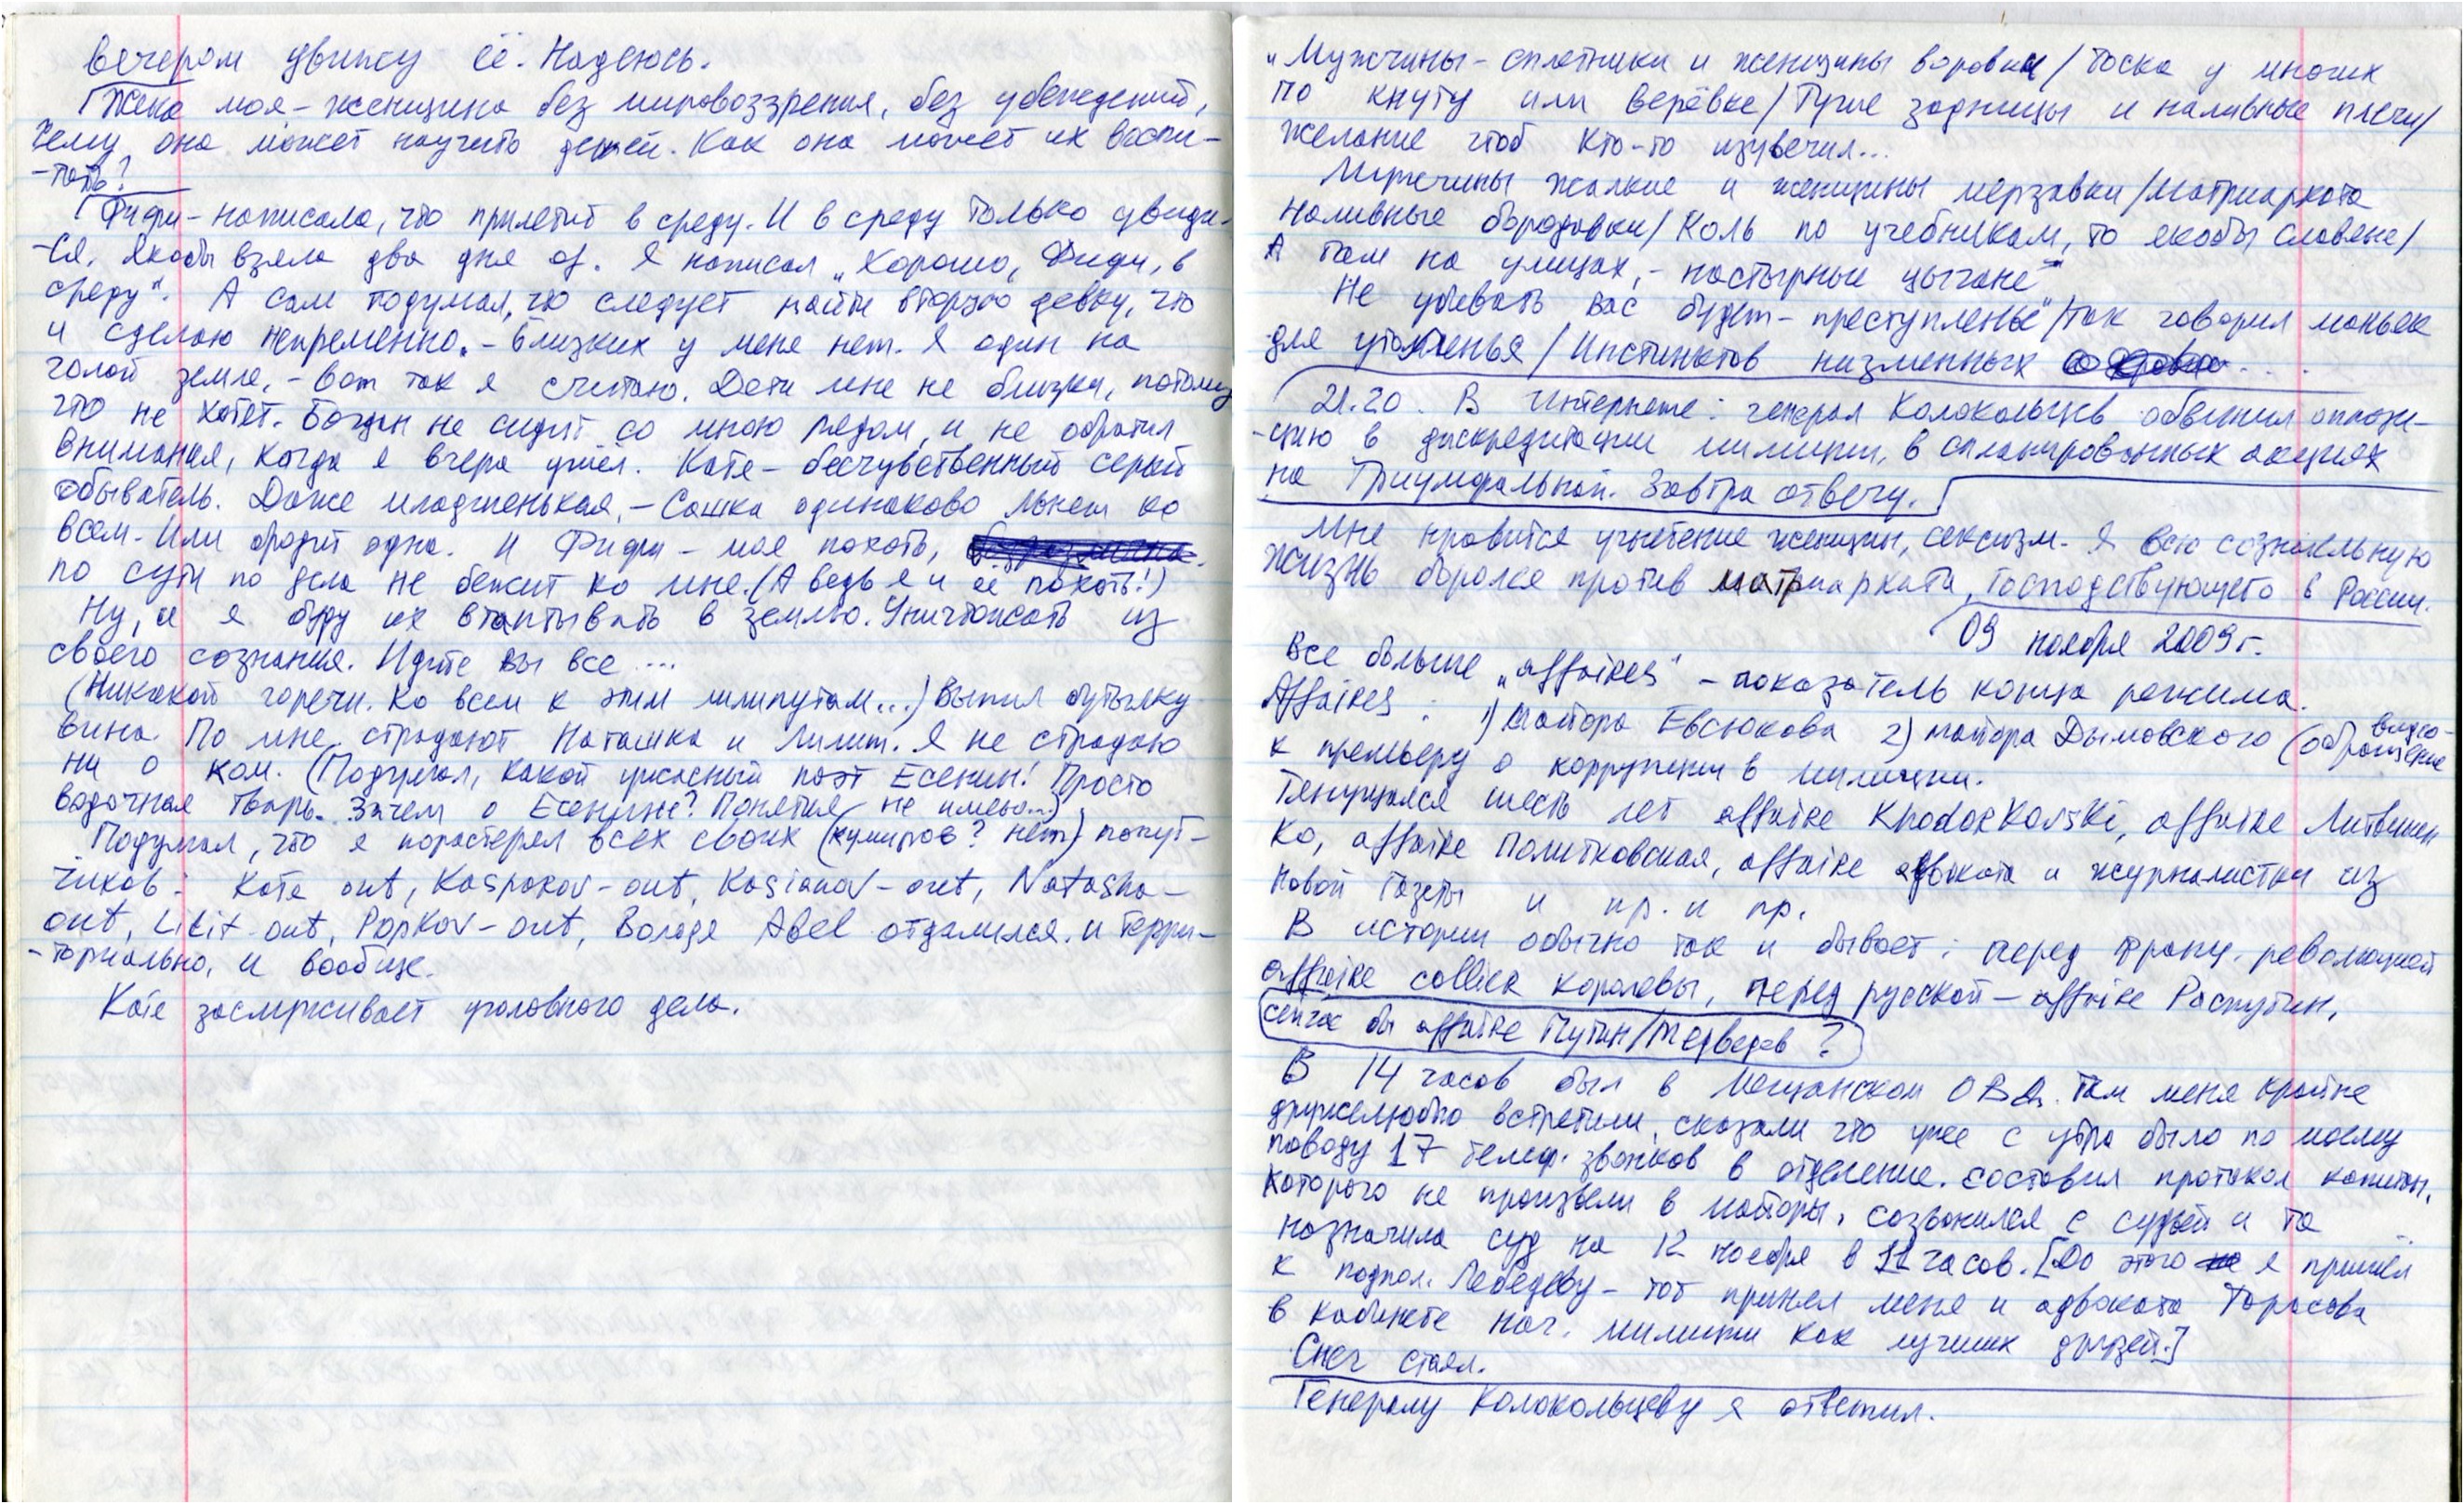 вечером увижу её. Надеюсь.
Жена моя – женщина без мировоззрения, без убеждений,
чему она может научить детей. Как она может их воспи-
-тать?
Фифи – написала, что прилетит в среду. И в среду только увиди-
-ся, якобы взяла два дня of. Я написал „Хорошо, Фифи, в
среду". А сам подумал, что следует найти вторую девку, что
и сделаю непременно. – Близких у меня нет. Я один на
голой земле, – вот так я считаю. Дети мне не близки, потому
что не хотят. Богдан не сидит со мною рядом, и не обратил
внимания, когда я вчера ушёл. Катя – бесчувственный серый
обыватель. Даже младшенькая, – Сашка одинаково льнет ко
всем. Или бродит одна. И Фифи – моя похоть,
по сути по дела не бежит ко мне. (А ведь я и её похоть!)
Ну, и я буду их втаптывать в землю. Уничтожать из
своего сознания. Идите вы все ....
(Никакой горечи. Ко всем к этим лилипутам...) Выпил бутылку
вина. По мне страдают Наташка и Лилит. Я не страдаю
ни о ком. (Подумал, какой ужасный поэт Есенин! Просто
водочная тварь. Зачем о Есенине? Понятия не имею...)
Подумал, что я порастерял всех своих (кумиров? нет) попут-
чиков: Катя out, Kasparov – out, Kasianov – out, Natasha –
out, Lilit – out, Popkov – out, Володя Abel отдалился. и терри-
-ториально, и вообще.
Катя заслуживает уголовного дела.
„Мужчины – сплетники и женщины воровки / Тоска у многих
по кнуту или верёвке / Тугие задницы и наливные плечи /
желание чтоб кто-то изувечил...
Мужчины жалкие и женщины мерзавки / Матриархата
наливные бородавки / Коль по учебникам, то якобы славяне /
А там на улицах, – настырные цыгане"
Не убивать вас будет – преступленье" / так говорил маньяк
для утоленья / Инстинктов низменных ....
21.20. В Интернете: генерал Колокольцев обвинил оппози-
-цию в дискредитации милиции, в спланированных акциях
на Триумфальной. Завтра отвечу.
Мне нравится угнетение женщин, сексизм. Я всю сознательную
жизнь боролся против матриархата, господствующего в России.
09 ноября 2009 г.
Все больше „affaires" – показатель конца режима.
Affaires: 1) майора Евсюкова 2) майора Дымовского (видео-
обращение
к премьеру о коррупции в милиции.
Тянущаяся шесть лет affaire Khodorkovski, affaire Литвинен
ко, affaire Политковская, affaire адвоката и журналистки из
Новой Газеты и пр. и пр.
В истории обычно так и бывает: перед франц. революцией
affaire collier королевы, перед русской – affaire Распутин,
сейчас бы affaire Путин/Медведев?
В 14 часов был в Мещанском ОВД. Там меня крайне
дружелюбно встретили, сказали что уже с утра было по моему
поводу 17 телеф. звонков в отделение. составил протокол капитан,
которого не произвели в майоры, созвонился с судьёй и та
назначила суд на 12 ноября в 11 часов. [До этого я пришёл
к подпол. Лебедеву – тот принял меня и адвоката Тарасова
в кабинете нач. милиции как лучших друзей.]
Снег стаял.
Генералу Колокольцеву я ответил.